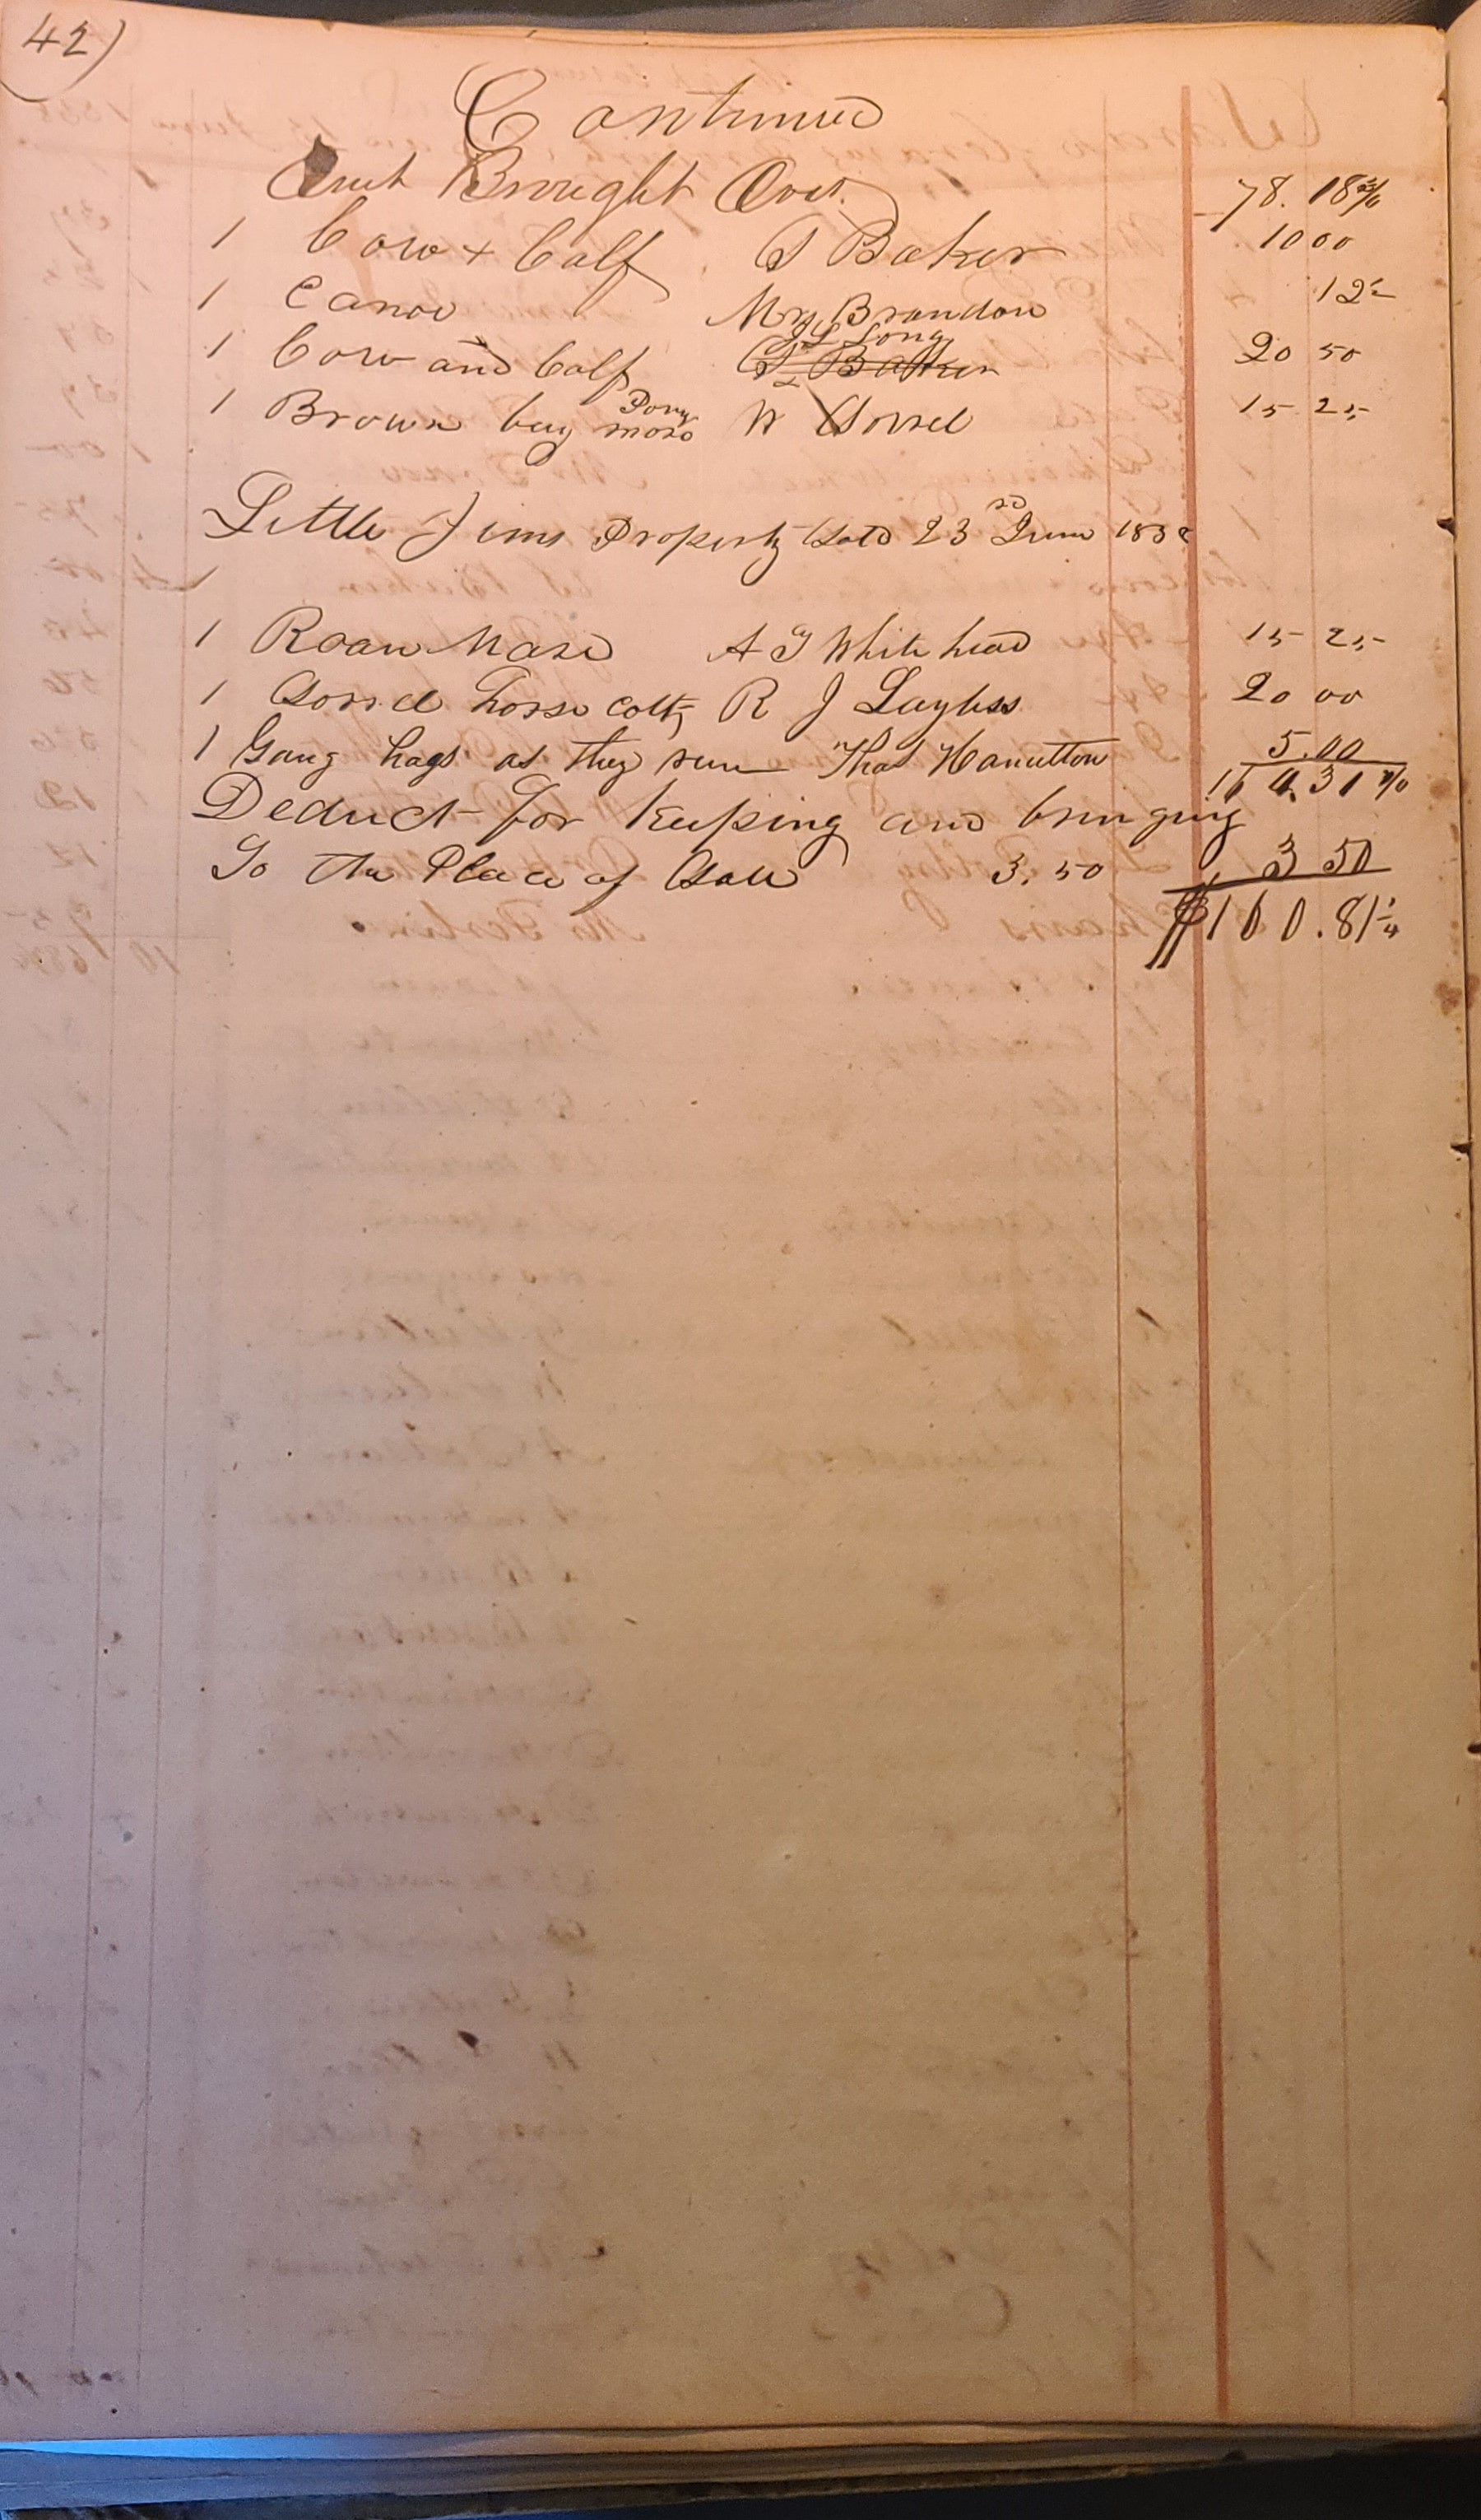 42)
Continued
Amt Brought Over 78. 18 3/4
1 Cow + Calf S Baker 10 00
1 Canoe Mrs Brandon 12 1/2
1 Cow and Calf J L Long S Baker 20 50
1 Brown bay Pony mare W Sorrel 15 25
Little Jims Property Sold 23rd June 1838
1
1 Roan Mare A G Whitehead 15 25
1 Sorrel horse colt R J Layless 20 00
1 Gang hogs as they run Thos Hamilton 5.00
164.31 1/4
Deduct for keeping and bringing
To the Place of Sale 3.50 3 50
$160.81 1/4